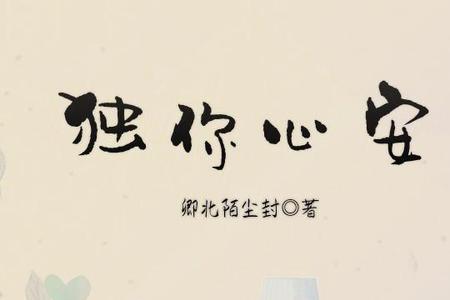 独你心安
卿北陌尘封◎著